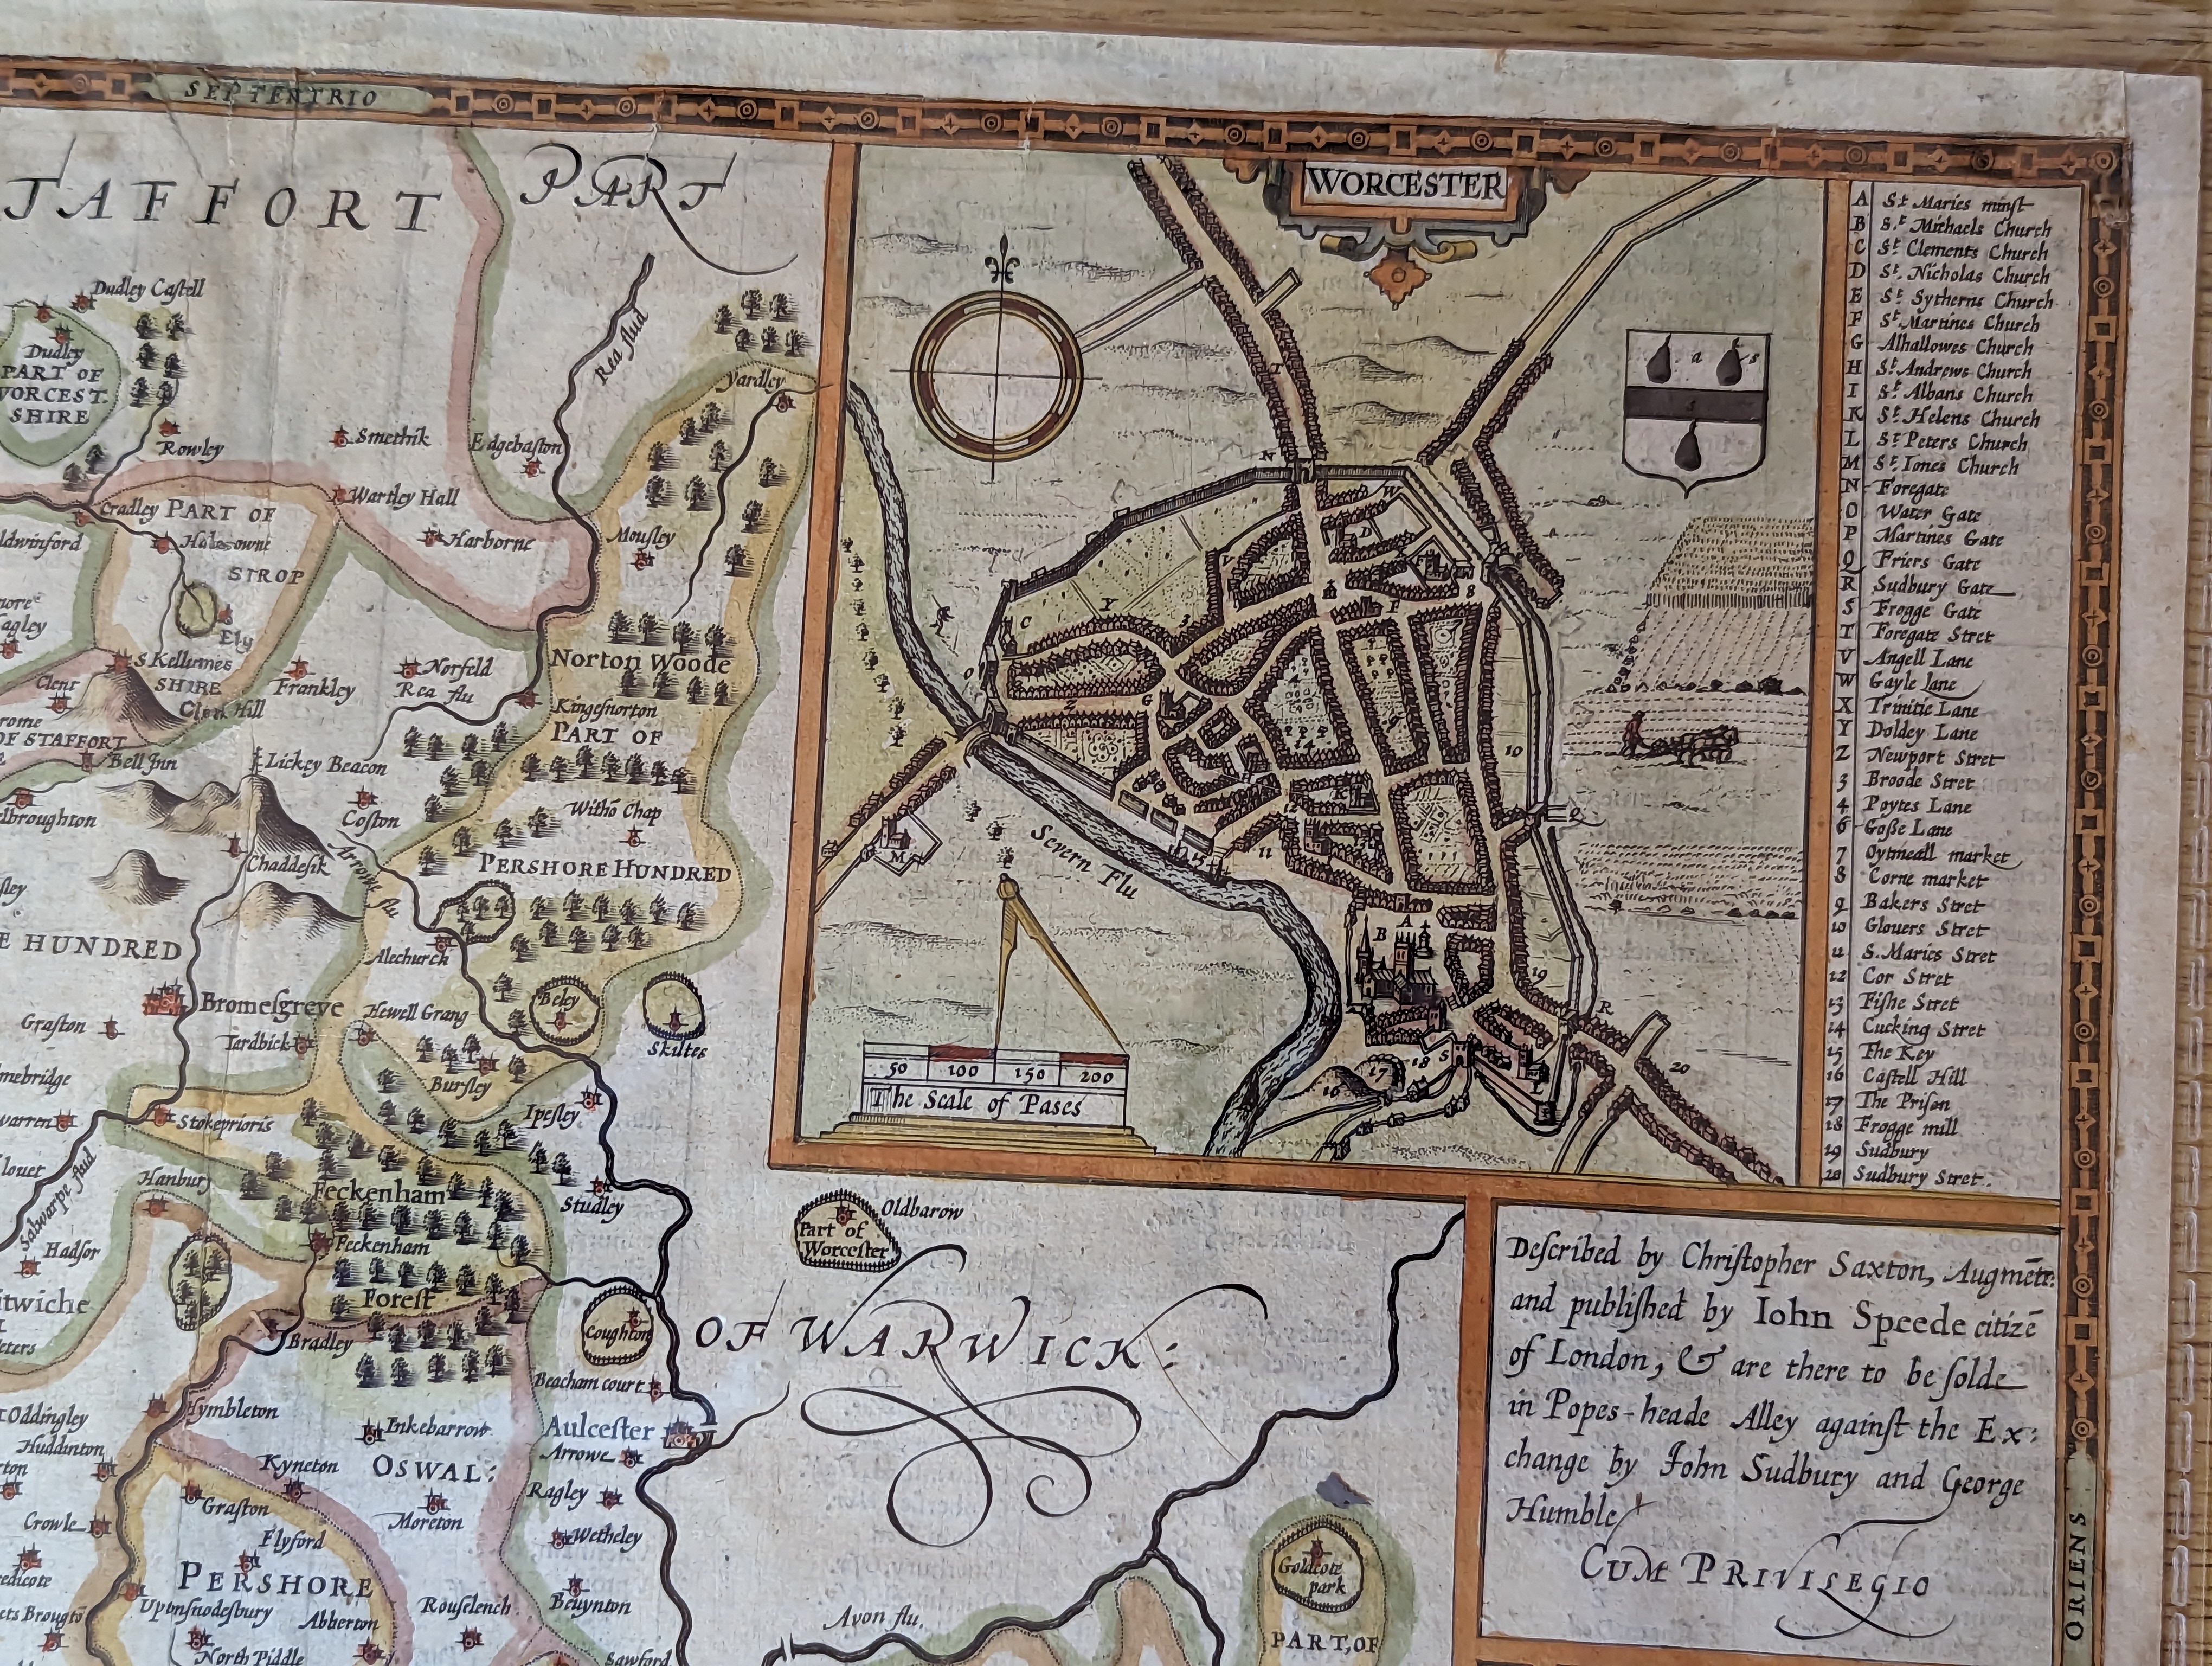 SEPTENTRIO
TAFFORT
PART
Dudley Castell
Dudley
PART OF
WORCEST.
SHIRE
Rea flud
Yardley
Rowley
Smethik
Edgebaston
Cradley
PART OF
Wartley Hall
Halesowne
Harborne
Mousley
STROP
Ely
S Kellimes
SHIRE
Clent
Clent Hill
Frankley
Norfeld
Rea flu
Norton Woode
Kingesnorton
PART OF
OF STAFFORT
Bell Inn
Lickey Beacon
Coston
Witho Chap
Chaddesik
Arrowe flu
PERSHORE HUNDRED
E HUNDRED
Alechurch
Bromesgreve
Hewell Grang
Beley
Skiltes
Grafton
Tardbick
Bursley
Ipesley
Stokeprioris
Salwarpe flud
Hanbury
Feckenham
Studley
Hadsor
Feckenham
Forest
Oldbarow
Part of
Worcester
Bradley
Coughton
OF WARWICK:
Beacham court
Hymbleton
Oddingley
Huddinton
Inkebarrow
Aulcester
Arrowe
Kyneton
OSWAL:
Grafton
Moreton
Ragley
Crowle
Flyford
Wetheley
PERSHORE
Uptnsnodesbury
Abberton
Rouslench
Beuynton
North Piddle
Sawford
Avon flu.
Goldcote
park
PART, OF
WORCESTER
a
s
s
T
N
W
D
V
E
8
F
Y
3
C
O
Z
G
4
9
14
H
10
12
K
Q
M
Severn Flu
15
11
A
B
19
R
20
S
18
17
16
50 100 150 200
The Scale of Pases
A St Maries minst
B St Michaels Church
C St Clements Church
D St. Nicholas Church
E St Sytherns Church
F St Martines Church
G Alhallowes Church
H St Andrews Church
I St Albans Church
K St Helens Church
L St Peters Church
M St Iones Church
N Foregate
O Water Gate
P Martines Gate
Q Friers Gate
R Sudbury Gate
S Frogge Gate
T Foregate Stret
V Angell Lane
W Gayle lane
X Trinitie Lane
Y Doldey Lane
Z Newport Stret
3 Broode Stret
4 Poytes Lane
6 Goße Lane
7 Oytmeall market
8 Corne market
9 Bakers Stret
10 Glouers Stret
11 S. Maries Stret
12 Cor Stret
13 Fishe Stret
14 Cucking Stret
15 The Key
16 Castell Hill
17 The Prison
18 Frogge mill
19 Sudbury
20 Sudbury Stret.
Described by Christopher Saxton, Augmētr:
and published by Iohn Speede citizē
of London, & are there to be solde
in Popes-heade Alley against the Ex:
change by John Sudbury and George
Humble
CUM PRIVILEGIO
ORIENS